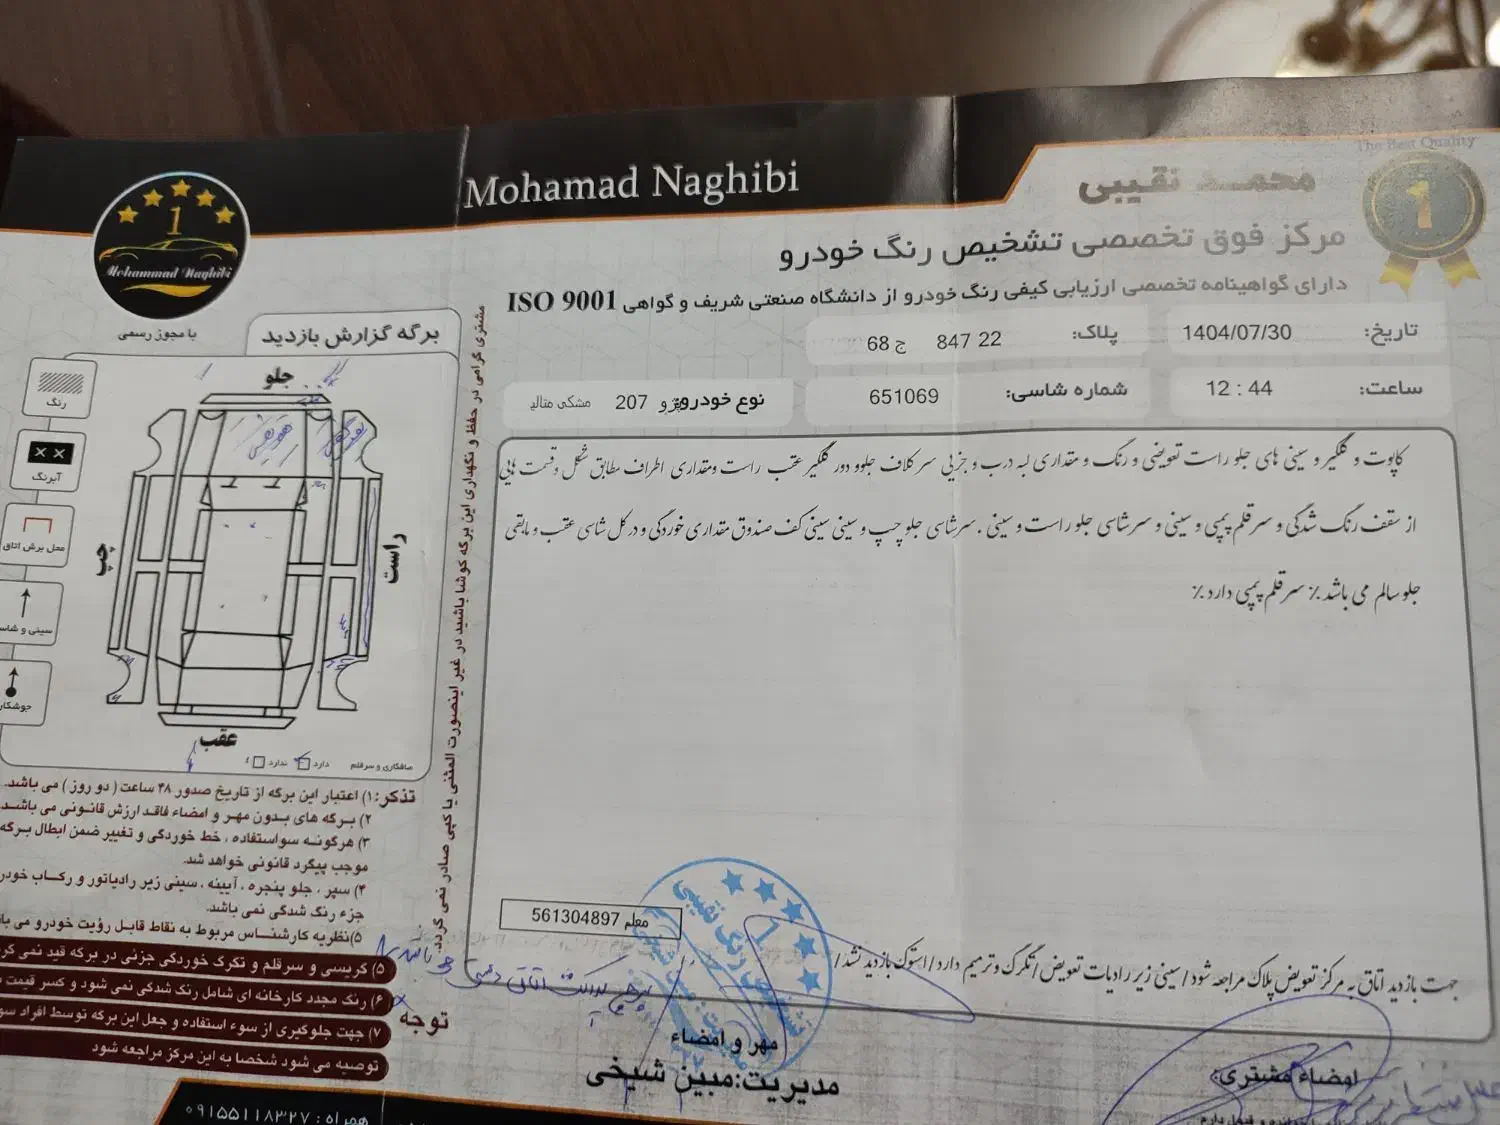 The Best Quality
1
Mohamad Naghibi
محمد نقیبی
مرکز فوق تخصصی تشخیص رنگ خودرو
دارای گواهینامه تخصصی ارزیابی کیفی رنگ خودرو از دانشگاه صنعتی شریف و گواهی ISO 9001
1
Mohammad Naghibi
با مجوز رسمی
تاریخ: 1404/07/30
پلاک: 22 847 ج 68
ساعت: 12 : 44
شماره شاسی: 651069
نوع خودرو: پژو 207 مشکی متالیک
کاپوت و گلگیر و سینی های جلو راست تعویضی و رنگ و مقداری لبه درب و جزیی سر کلاف جلوو دور گلگیر عقب راست ومقداری اطراف مطابق شکل وقسمت هایی
از سقف رنگ شدگی و سرقلم پمپی و سینی و سرشاسی جلو راست و سینی . سرشاسی جلو چپ و سینی سینی کف صندوق مقداری خوردگی و در کل شاسی عقب و مابقی
جلو سالم می باشد٪ سرقلم پمپی دارد٪
معلم 561304897
جهت بازدید اتاق به مرکز تعویض پلاک مراجعه شود/سینی زیر رادیات تعویض/تگرگ وترمیم دارد/استوک بازدید نشد/
مهر و امضاء
مدیریت:مبین شیخی
امضاء مشتری:
برگه گزارش بازدید
جلو
تعویض
راست
چپ
عقب
رنگ
آبرنگ
محل برش اتاق
سینی و شاسی
جوشکاری
صافکاری و سرقلم دارد ندارد
مشتری گرامی در حفظ و نگهداری این برگه کوشا باشید در غیر اینصورت المثنی یا کپی صادر نمی گردد.
تذکر: ۱) اعتبار این برگه از تاریخ صدور ۴۸ ساعت ( دو روز ) می باشد.
۲) برگه های بدون مهر و امضاء فاقد ارزش قانونی می باشد.
۳) هرگونه سواستفاده ، خط خوردگی و تغییر ضمن ابطال برگه
موجب پیگرد قانونی خواهد شد.
۴) سپر ، جلو پنجره ، آیینه ، سینی زیر رادیاتور و رکاب خودرو
جزء رنگ شدگی نمی باشد.
۵)نظریه کارشناس مربوط به نقاط قابل رؤیت خودرو می باشد
۵) کریسی و سرقلم و تگرگ خوردگی جزئی در برگه قید نمی گردد
۶) رنگ مجدد کارخانه ای شامل رنگ شدگی نمی شود و کسر قیمت
توجه
۷) جهت جلوگیری از سوء استفاده و جعل این برگه توسط افراد سود
توصیه می شود شخصا به این مرکز مراجعه شود
همراه : ۰۹۱۵۵۱۱۸۳۲۷